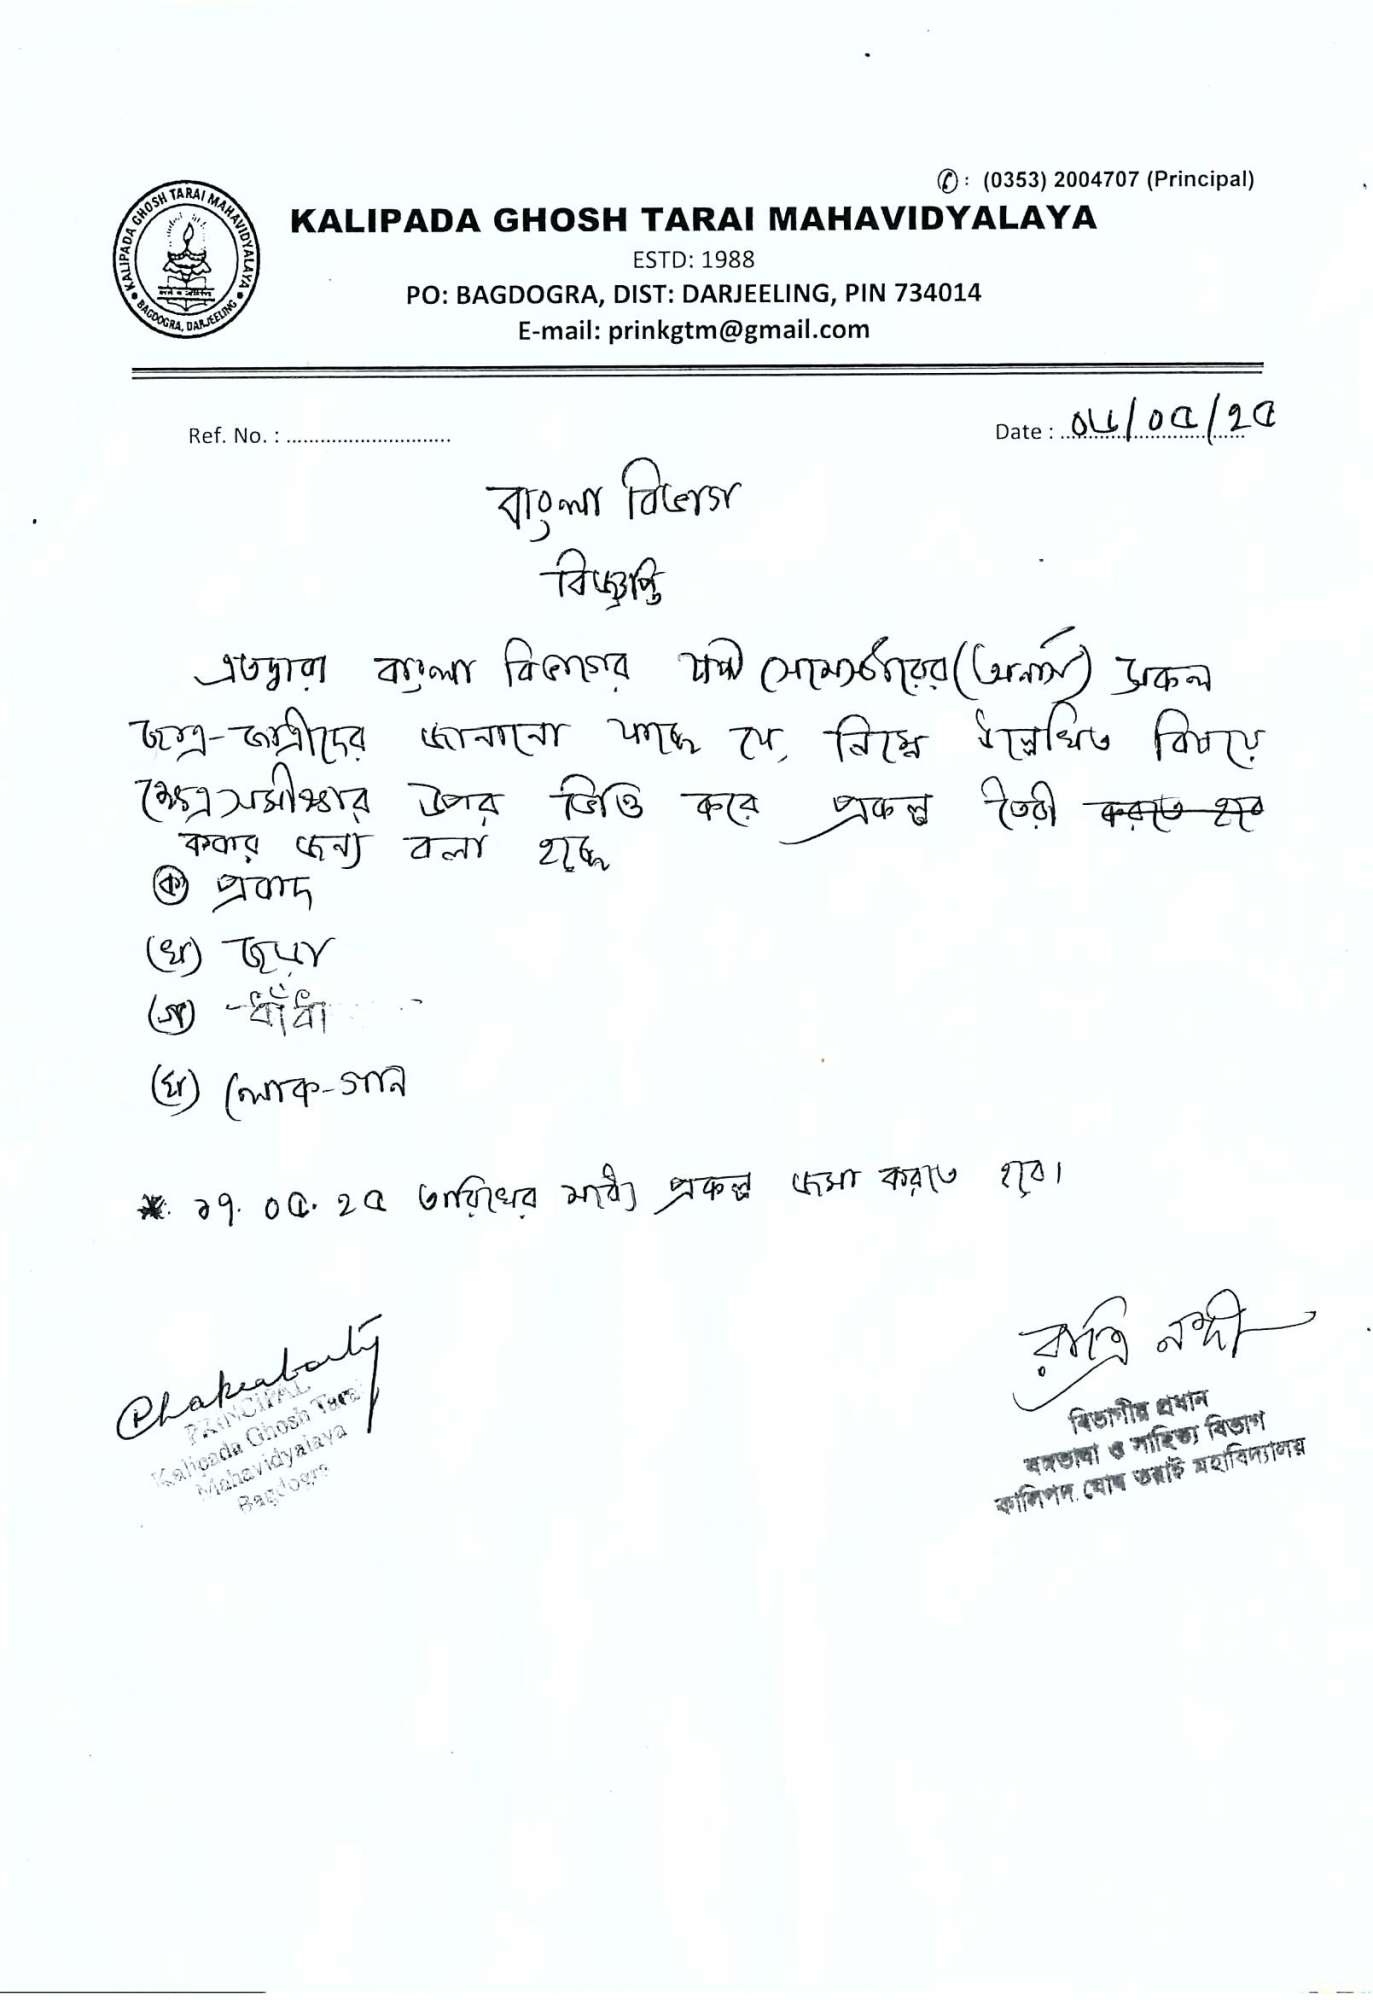 ✆ : (0353) 2004707 (Principal)
KALIPADA GHOSH TARAI MAHAVIDYALAYA
ESTD: 1988
PO: BAGDOGRA, DIST: DARJEELING, PIN 734014
E-mail: prinkgtm@gmail.com
KALIPADA GHOSH TARAI MAHAVIDYALAYA
BAGDOGRA, DARJEELING
Ref. No. : ............................. Date : ০৮/০৫/২৫
বাংলা বিভাগ
বিজ্ঞপ্তি
এতদ্বারা বাংলা বিভাগের ষষ্ঠ সেমেস্টারের (অনার্স) সকল
ছাত্র-ছাত্রীদের জানানো যাচ্ছে যে, নিম্নে উল্লেখিত বিষয়ে
ক্ষেত্রসমীক্ষার উপর ভিত্তি করে প্রকল্প তৈরী করতে হবে
করার জন্য বলা হচ্ছে
(ক) প্রবাদ
(খ) ছড়া
(গ) ধাঁধাঁ
(ঘ) লোক-গান
* ১৭. ০৫. ২৫ তারিখের মধ্যে প্রকল্প জমা করতে হবে।
Chakraborty
PRINCIPAL
Kalipada Ghosh Tarai
Mahavidyalaya
Bagdogra
রাত্রি নন্দী
বিভাগীয় প্রধান
বঙ্গভাষা ও সাহিত্য বিভাগ
কালিপদ ঘোষ তরাই মহাবিদ্যালয়